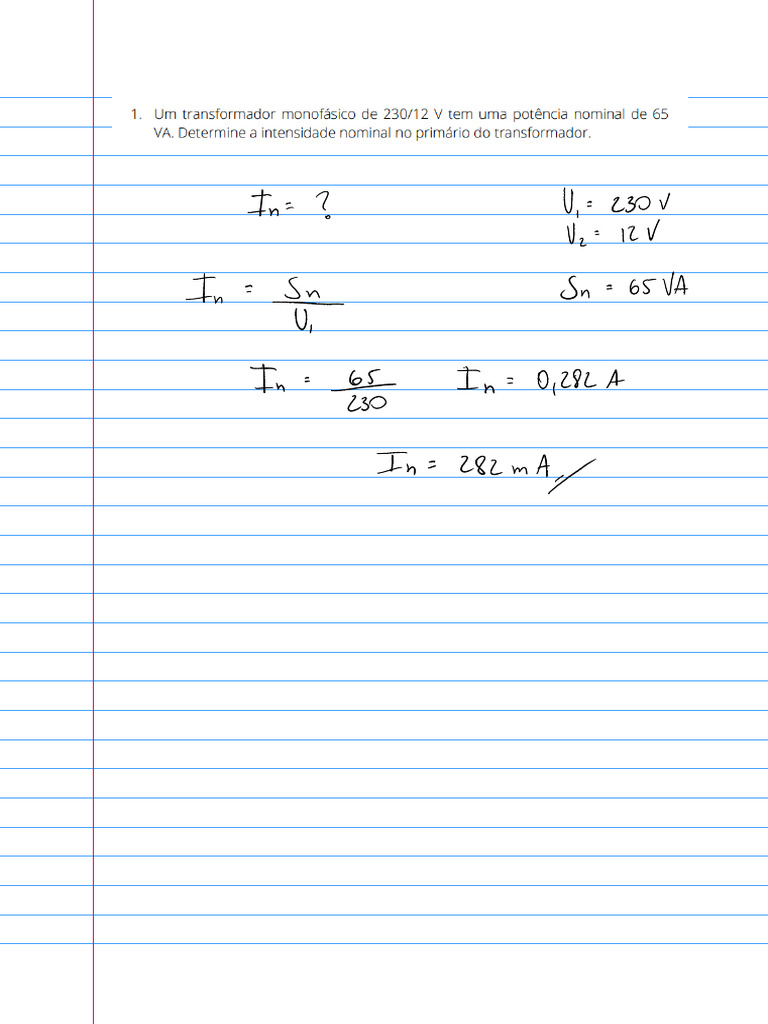 1. Um transformador monofásico de 230/12 V tem uma potência nominal de 65
VA. Determine a intensidade nominal no primário do transformador.
In = ? U₁ = 230 V
U₂ = 12 V
In = Sn / U₁ Sn = 65 VA
In = 65 / 230 In = 0,282 A
In = 282 mA